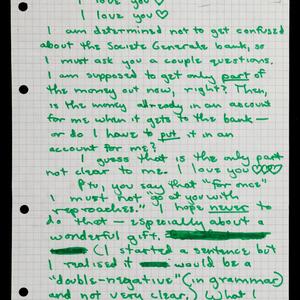 I love you ♡
I love you ♡
I am determined not to get confused
about the Societe Generale bank, so
I must ask you a couple questions.
I am supposed to get only part of
the money out now, right? Then,
is the money allready in an account
for me when it gets to the bank —
or do I have to put it in an
account for me?
I guess that is the only part
not clear to me. I love you ♡♡♡♡
you say that "for once"
I must not go at you with
"reproaches." I hope never to
do that — especially about a
wonderful gift.
(I started a sentence but
I realised it would be a
"double-negative" (in grammar)
and not very clear.) What I